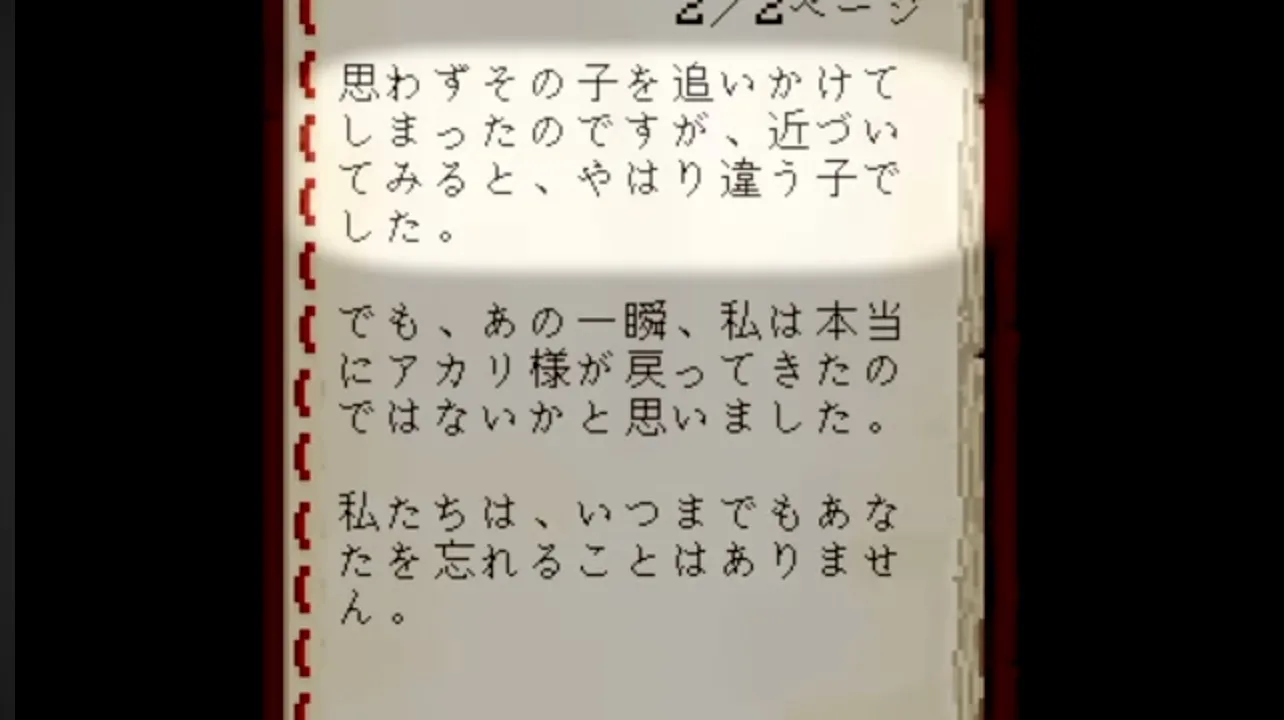 2/2ページ
思わずその子を追いかけて
しまったのですが、近づい
てみると、やはり違う子で
した。
でも、あの一瞬、私は本当
にアカリ様が戻ってきたの
ではないかと思いました。
私たちは、いつまでもあな
たを忘れることはありませ
ん。